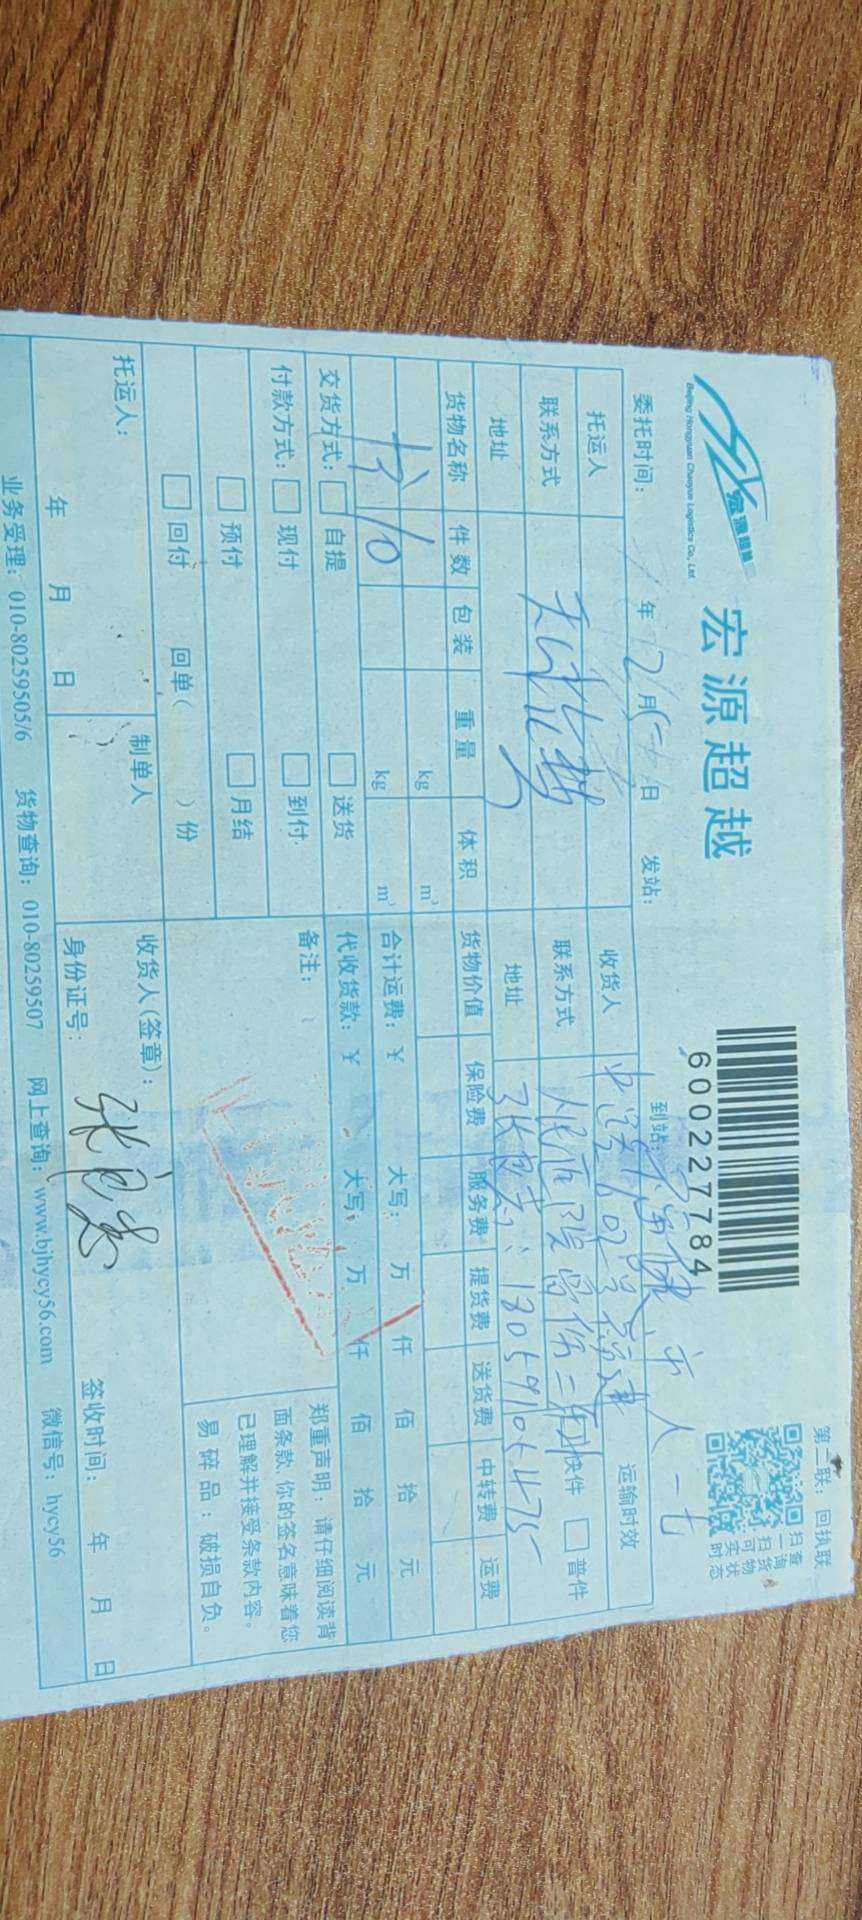 宏源超越
Beijing Hongyuan Chaoyue Logistics Co., Ltd.
宏源超越
600227784
第二联：回执联
扫一扫
查询货物
可实时状态
委托时间： 年 12月5日 发站： 到站：
托运人 收货人 运输时效
联系方式 联系方式 人民医院 快件 普件
地址 地址 18059105475
货物名称 件数 包装 重量 体积 货物价值 保险费 服务费 提货费 送货费 中转费 运费
kg m³
10 kg m³ 合计运费：￥ 大写： 万 仟 佰 拾 元
交货方式： 自提 送货 代收货款：￥ 大写： 万 仟 佰 拾 元
付款方式： 现付 到付 备注：
预付 月结
回付 回单（ ）份
郑重声明：请仔细阅读背
面条款，你的签名意味着您
已理解并接受条款内容。
易碎品：破损自负。
托运人： 制单人 收货人(签章)：
年 月 日 身份证号： 签收时间： 年 月 日
业务受理：010-80259505/6 货物查询：010-80259507 网上查询：www.bjhycy56.com 微信号：hycy56